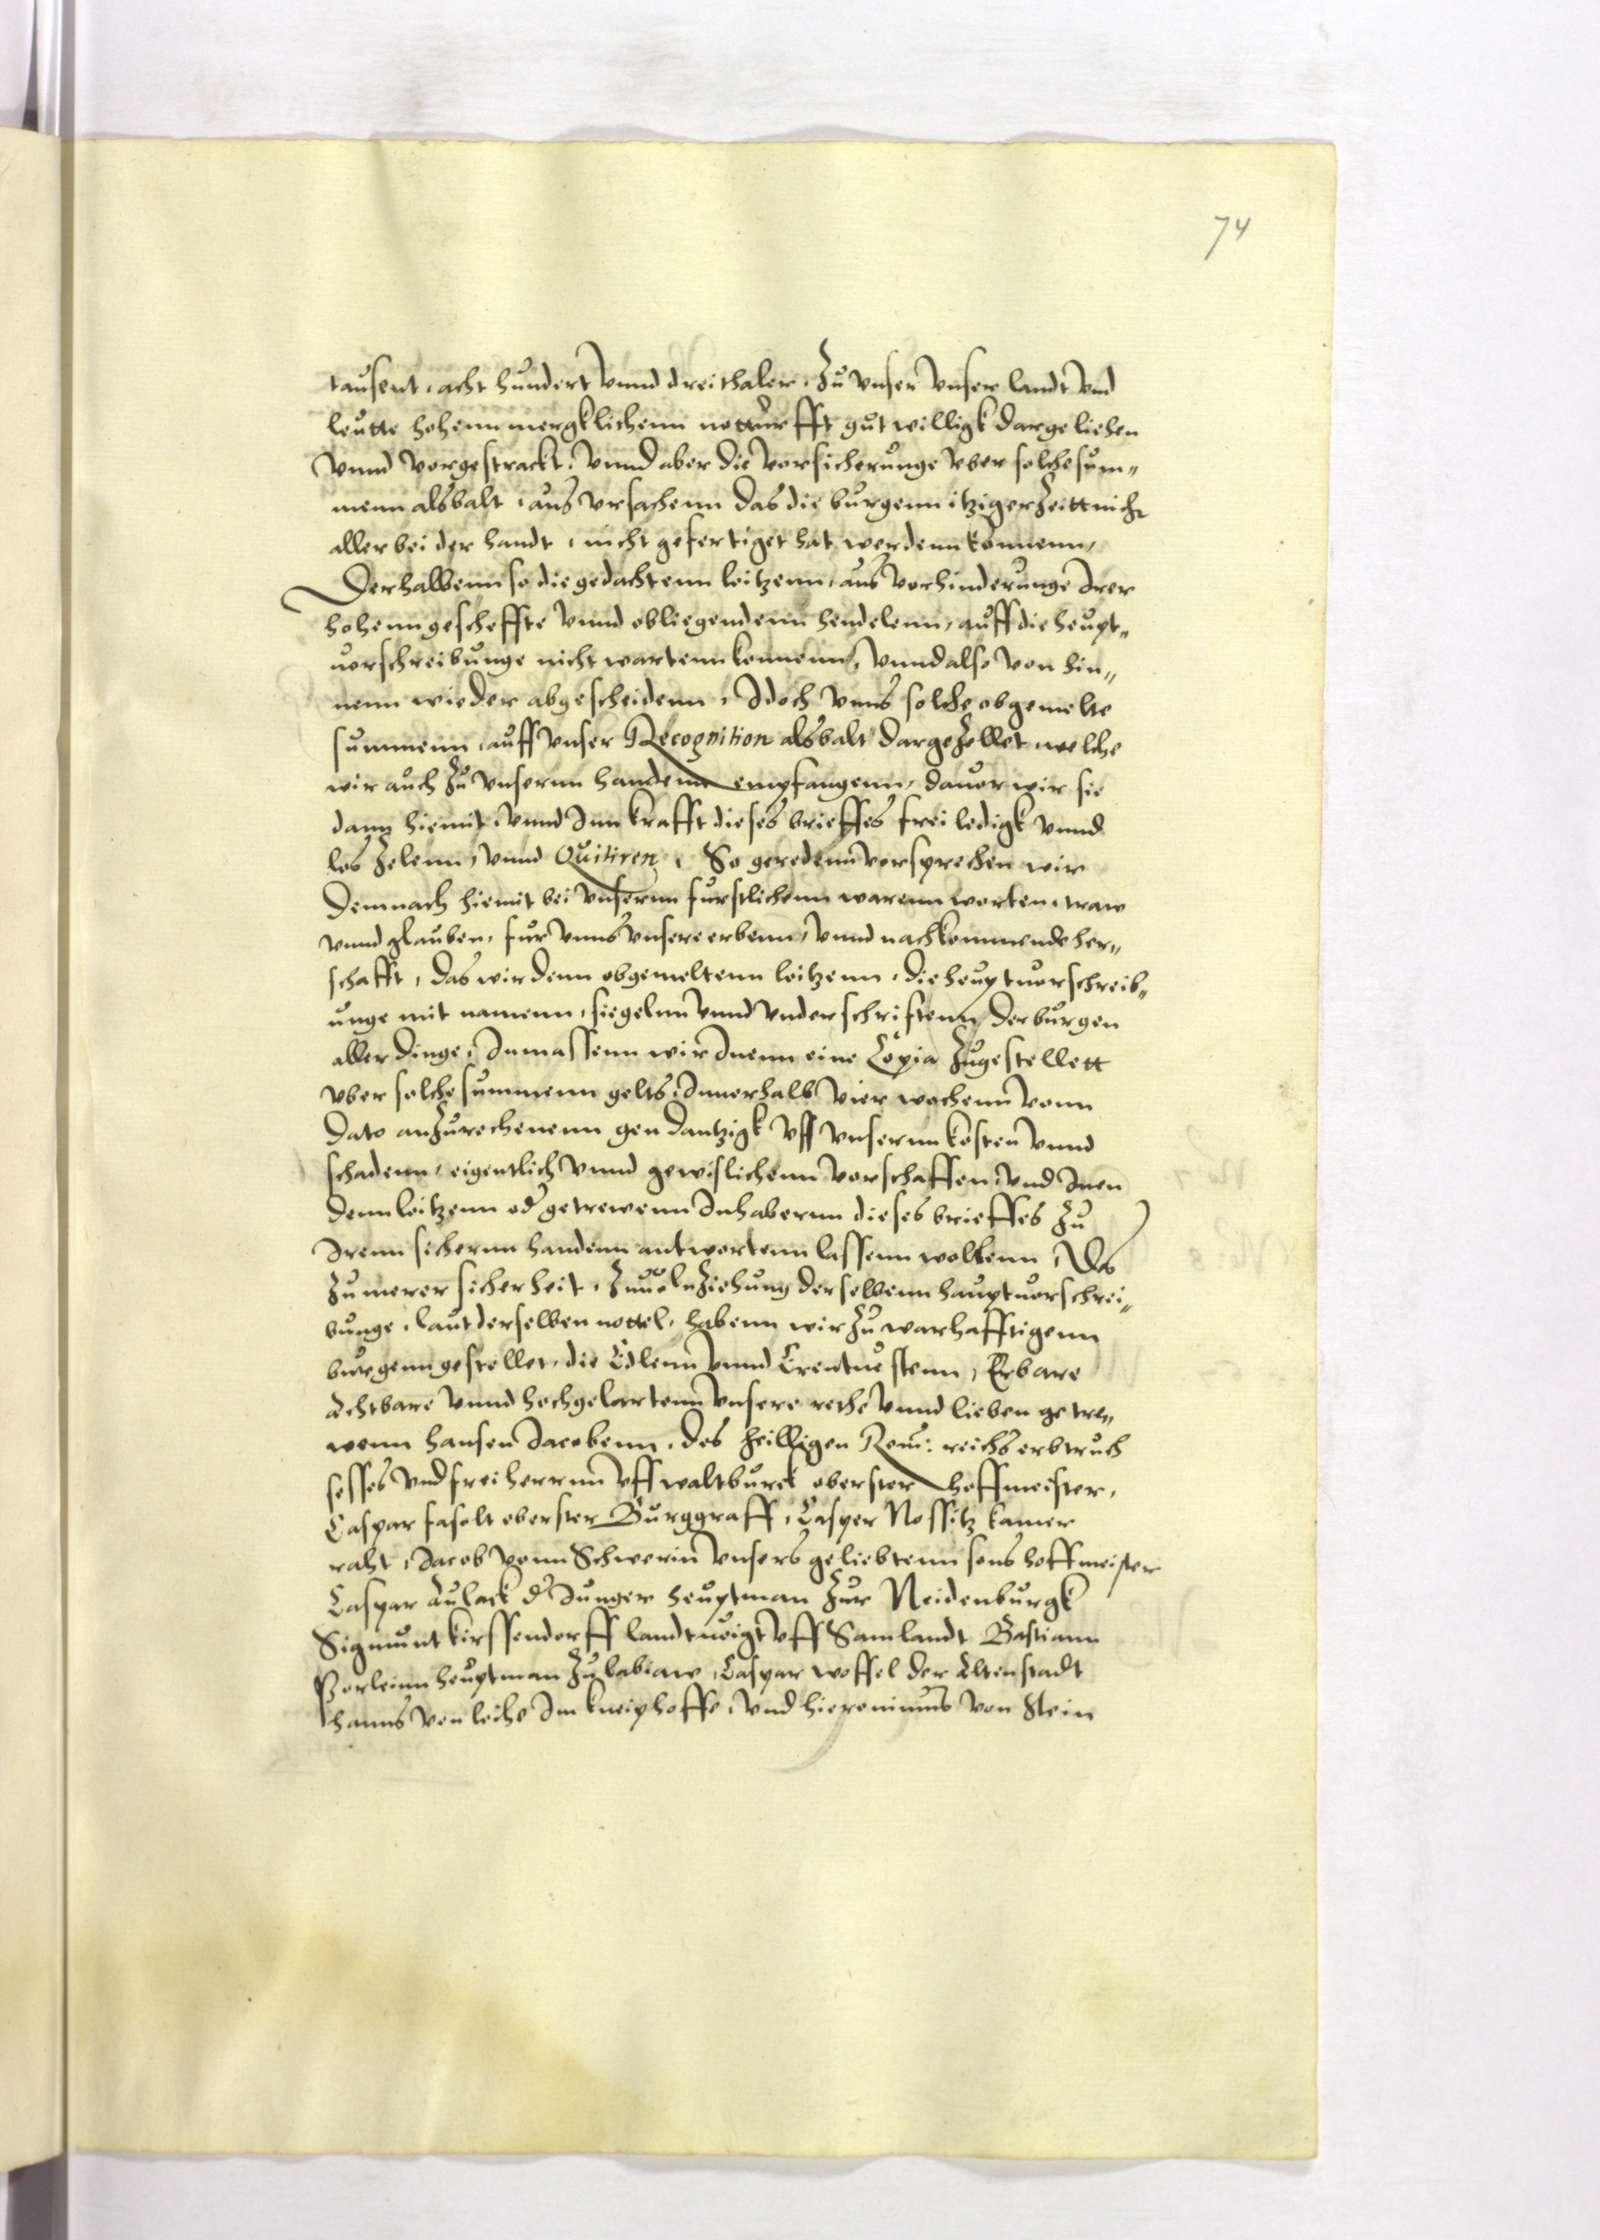 74
tausent, acht hundert vnnd dreithaler, Zu vnser vnser landt vnd
leutte hohenn mergklichenn notturfft gutwilligk dargeliehen
vnnd vorgestrackt, vnnd aber die vorsicherunge vber solche sum„
menn alsbalt, aus vrsachenn das die burgenn itziger Zeitt nicht
aller bei der handt, nicht gefertiget hat werdenn konnenn,
Derhalbenn so die gedachtenn loitzenn, aus vorhinderunge Irer
hohenn gescheffte vnnd obliegendenn hendelenn, auff die heupt„
uorschreibunge nicht wartenn konnenn, vnnd also von hin„
nenn wieder abgescheidenn, Idoch vnns solche obgemelte
summenn, auff vnser Recognition alsbalt dargeZellet, welche
wir auch Zu vnsernn handenn empfangenn, dauor wir sie
dann hiemit, vnnd Inn krafft dieses brieffes frei ledigk vnnd
los Zelenn, vnnd Quitiren, So geredenn vorsprechen wir
Demnach hiemit bei vnsernn furstlichenn warenn worten, traw
vnnd glauben, fur vnns vnsere erbenn, vnnd nachkommende her„
schafft, das wir denn obgemeltenn loitzenn, die heuptuorschreib„
unge mit namenn, siegelnn vnnd vnderschrifftenn der burgen
aller dinge, Inmassenn wir Inenn eine Copia Zugestellett
vber solche summenn gelts, Innerhalb vier wochenn vonn
Dato anZurechenenn gen dantzigk vff vnsernn kosten vnnd
schadenn, eigentlich vnnd gewislichenn vorschaffen, vnd Inen
denn loitzenn od getrewenn Inhabernn dieses brieffes Zu
Irenn sichernn handenn antwortenn lassenn wollenn, Des
Zu merer sicherheit, Zuuolnziehung derselbenn hauptuorschrei„
bunge, laut derselben nottel, habenn wir Zu warhafftigenn
burgenn gestellet, die Edlenn vnnd Erentuestenn, Erbare
Achtbare vnnd hochgelartenn vnsere rethe vnnd lieben getre„
wenn Hansen Jacobenn, des heilligen Rom: reichs erbtruch
sesses vnd freiherrnn vff waltburck oberster hoffmeister,
Caspar fasolt oberster Burggraff, Casper Nostitz kamer
raht, Jacob vonn Schwerin vnsers geliebtenn sons hoffmeister
Caspar Aulack d Junger heuptman Zur Neidenburgk
Sigmunt kirssendorff landtuoigt vff Samlandt Bastiann
Perleinn heuptman Zu labiaw, Caspar woffel der Altenstadt
hanns von lohe Im kneiphoffe, vnd Hieronimus von Stein